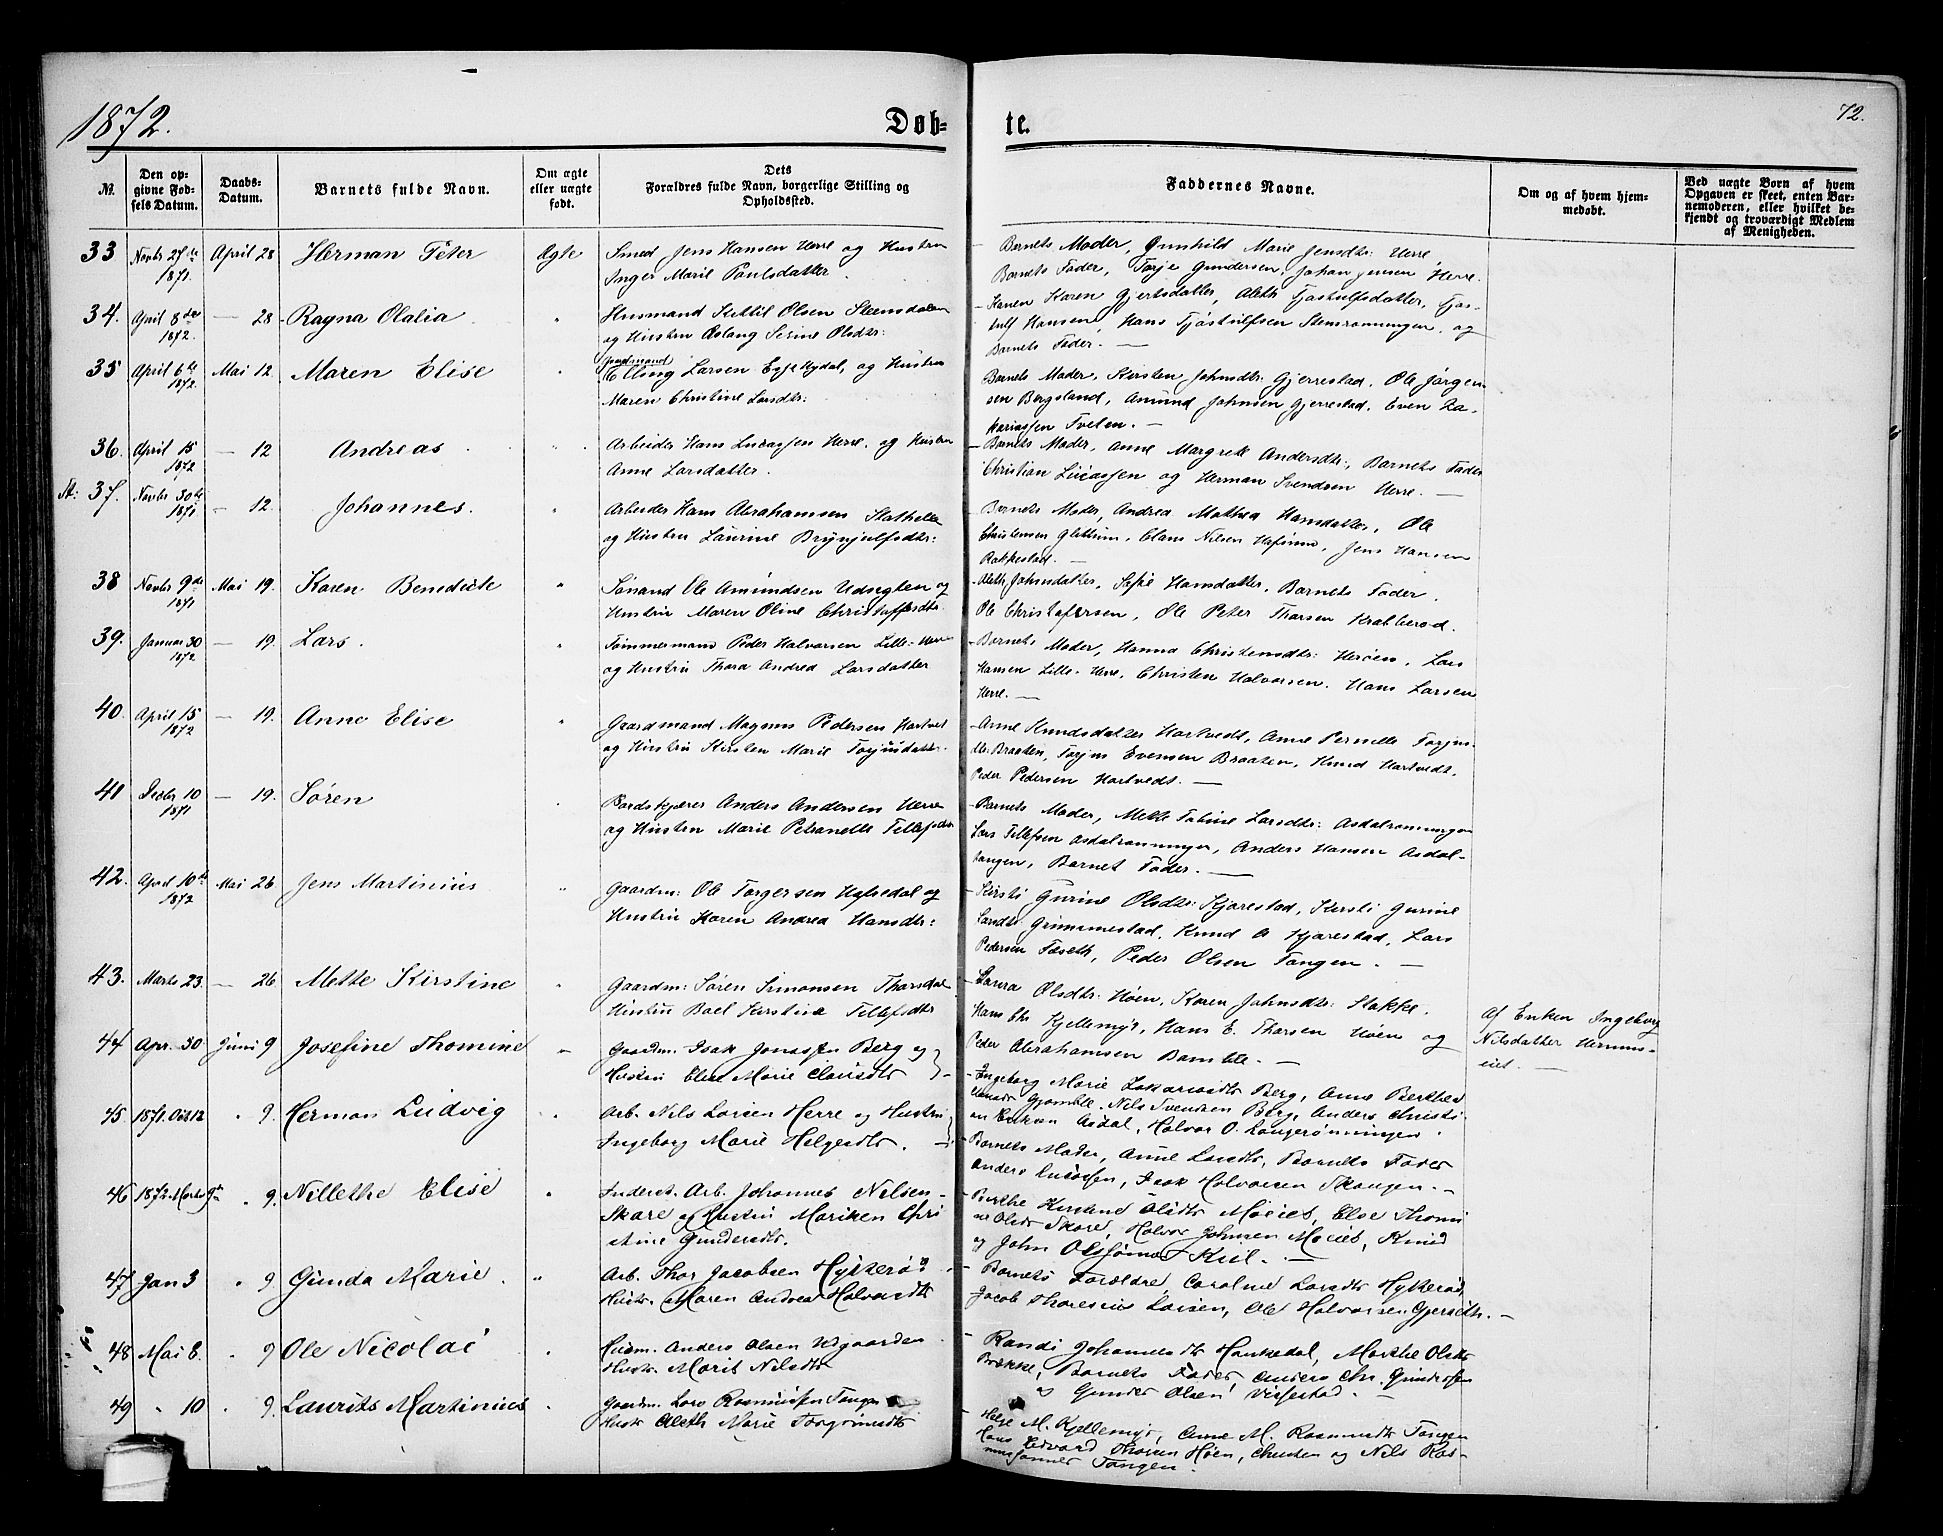 1872.
Døb-
te.
72.
No.
Den op-
givne Fød-
sels Datum.
Daabs-
Datum.
Barnets fulde Navn.
Om ægte
eller uægte
født.
Dets
Forældres fulde Navn, borgerlige Stilling og
Opholdssted.
Faddernes Navne.
Om og af hvem hjem-
medøbt.
Ved uægte Børn af hvem
Opgaven er skeet, enten Bar-
nemoderen, eller hvilket be-
kjendt og troværdigt Medlem
af Menigheden.
33 Novbr 27de 1871. April 28 Herman Peter Ægte
Smed Jens Hansen Herre og Hustru
Inger Marie Paulsdatter.
Barnets Moder, Gunhild Marie Jensdtr: Herre,
Barnets Fader, Torje Gundersen, Johan Jensen Herre.
34. April 8de 1872. — 28 Ragna Olalia "
Husmand Kittil Olsen Steensdalen
og Hustru Aslaug Serine Olsdtr:
Karen Gjertsdatter, Aleth Tjostulfsdatter, Tjos-
tulf Hansen, Hans Tjostulfsen Stensrønningen, og
Barnets Fader. —
35 April 6te 1872. Mai 12. Maren Elise "
Elling Larsen og Hustru
Maren Christine Larsdtr:
Barnets Moder, Kirsten Johnsdtr: Gjerrestad, Ole Jørgen-
sen Bergsland, Amund Johnsen Gjerrestad, Even Za-
kariassen Tveten. —
36. April 15 1872 — 12 Andreas "
Arbeider Hans Lucassen Herre, og Hustru
Anne Larsdatter.
Barnets Moder, Anne Margrete Andersdtr:, Barnets Fader
Christian Lucassen og Herman Svendsen Herre. —
37. Novbr 30te 1871. — 12. Johannes. "
Arbeider Hans Abrahamsen Stathelle
og Hustru Laurine Brynjulfsdtr:
Barnets Moder, Andrea Mathea Hansdatter, Ole
Christensen Glittum, Claus Nilsen, Jens Hansen
Rakkestad. —
38 Novbr 9de 1871 Mai 19. Karen Benedicte "
Sømand Ole Amundsen og
Hustru Maren Oline Christoffersdtr:
Aleth Johnsdatter, Hansdatter, Barnets Fader.
Ole Christofersen, Ole Peter Thorsen Krabberød.
39. Januar 30 1872 — 19. Lars. "
Tømmermand Peder Halvorsen Lille-Herre
og Hustru Thora Andrea Larsdatter
Barnets Moder, Hanna Christensdtr: Herøen, Lars
Hansen Lille-Herre, Christen Halvorsen, Hans Larsen
Herre. —
40. April 15 1872 — 19. Anne Elise "
Gaardmand Magnus Pedersen Hartvedt
og Hustru Kirsten Marie Torjusdatter.
Anne Knudsdatter Hartvedt, Anne Pernille Torjus-
dtr: Braaten, Torjus Evensen Braaten, Knud Hartvedt,
Peder Pedersen Hartvedt. —
41 Decbr 10 1871 — 19. Søren
Bordskjærer Anders Andersen Herre
og Hustru Marie Petronelle Tellefsdtr
Barnets Moder, Mette Tabine Larsdtr: Asdalrønningen
Lars Tellefsen Asdalrønningen, Anders Hansen Asdal-
tangen, Barnet Fader. —
42. April 10de 1872 Mai 26 Jens Martinius "
Gaardm: Ole Torgersen Hafsedal og
Hustru Karen Andrea Hansdtr:
Kirsti Gurine Olsdtr: Kjærestad, Kirsti Gurine
Larsdtr: Grimmestad, Knud A Kjærestad, Lars
Pedersen Taseth, Peder Olsen Tangen. —
43. Marts 23. — 26. Mette Kirstine
Gaardm: Søren Simonsen Thorsdal
Hustru Boel Kirstine Tellefsdtr
Laura Olsdtr: Høen, Karen Johnsdtr: Stokke.
Hans Chr Kjellemyr, Hans E. Thorsen Høen og
Peder Abrahamsen Bamble. —
Af Enken Ingeborg
Nilsdatter
44 Apr. 30 Juni 9 Josefine Thomine "
Gaardm. Isak Jonassen Berg og
Hustru Elise Marie Clausdtr
Ingeborg Marie Zakariasdtr Berg, Anne Berthea
Gjømle. Nils Svendsen Berg, Anders Christi-
an Asdal, Halvor O. Langrønningen.
45. 1871. Oct 12 " 9. Herman Ludvig "
Arb. Nils Larsen Herre og Hustru
Ingeborg Marie Helgesdtr.
Barnets Moder, Anne Larsdtr, Barnets Fader
Anders Lucassen, Isak Halvorsen Skougen. —
46 1872. Marts 9de " 9. Nillethe Elise "
Inderst. Arb. Johannes Nilsen
Skare og Hustru Mariken Chri
stine Gundersdtr.
Berthe Olsdtr Elise
Olsdtr Skare, Halvor Johnsen Knud
og John —
47 Jan 3 " 9 Gunda Marie. "
Arb. Thor Jacobsen Hykkerød
Hustr. Maren Andrea Halvorsdtr
Barnets Forældre, Caroline Larsdtr Hykkerød
Jacob Larsen, Ole Halvorsen —
48 Mai 8. " 9 Ole Nicolai "
Husm. Anders Olsen Udgaarden
Hustr. Marit Nilsdtr
Randi Hankedal, Marthe Olsdtr
Brække, Barnets Fader, Anders Chr. Gundersen
og Gunder Olsen Vissestad. —
49 " 10 " 9. Laurits Martinius "
Gaardm. Lars Rasmussen Tangen
Hustr Aleth Marie
Helje M. Kjellemyr, Anne M. Rasmusdtr Tangen
Hans Edvard Thorsen Høen, Christen og Nils Ras-
Tangen.